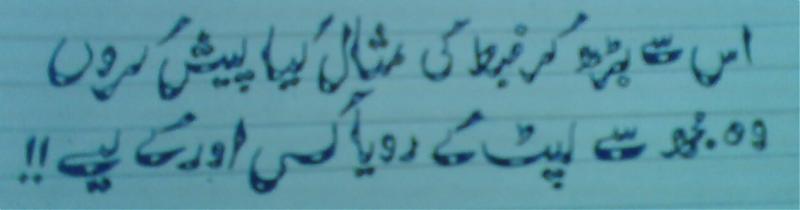 اس سے بڑھ کر ضبط کی مثال کیا پیش کروں
وہ مجھ سے لپٹ کے رویا کسی اور کے لیے !!